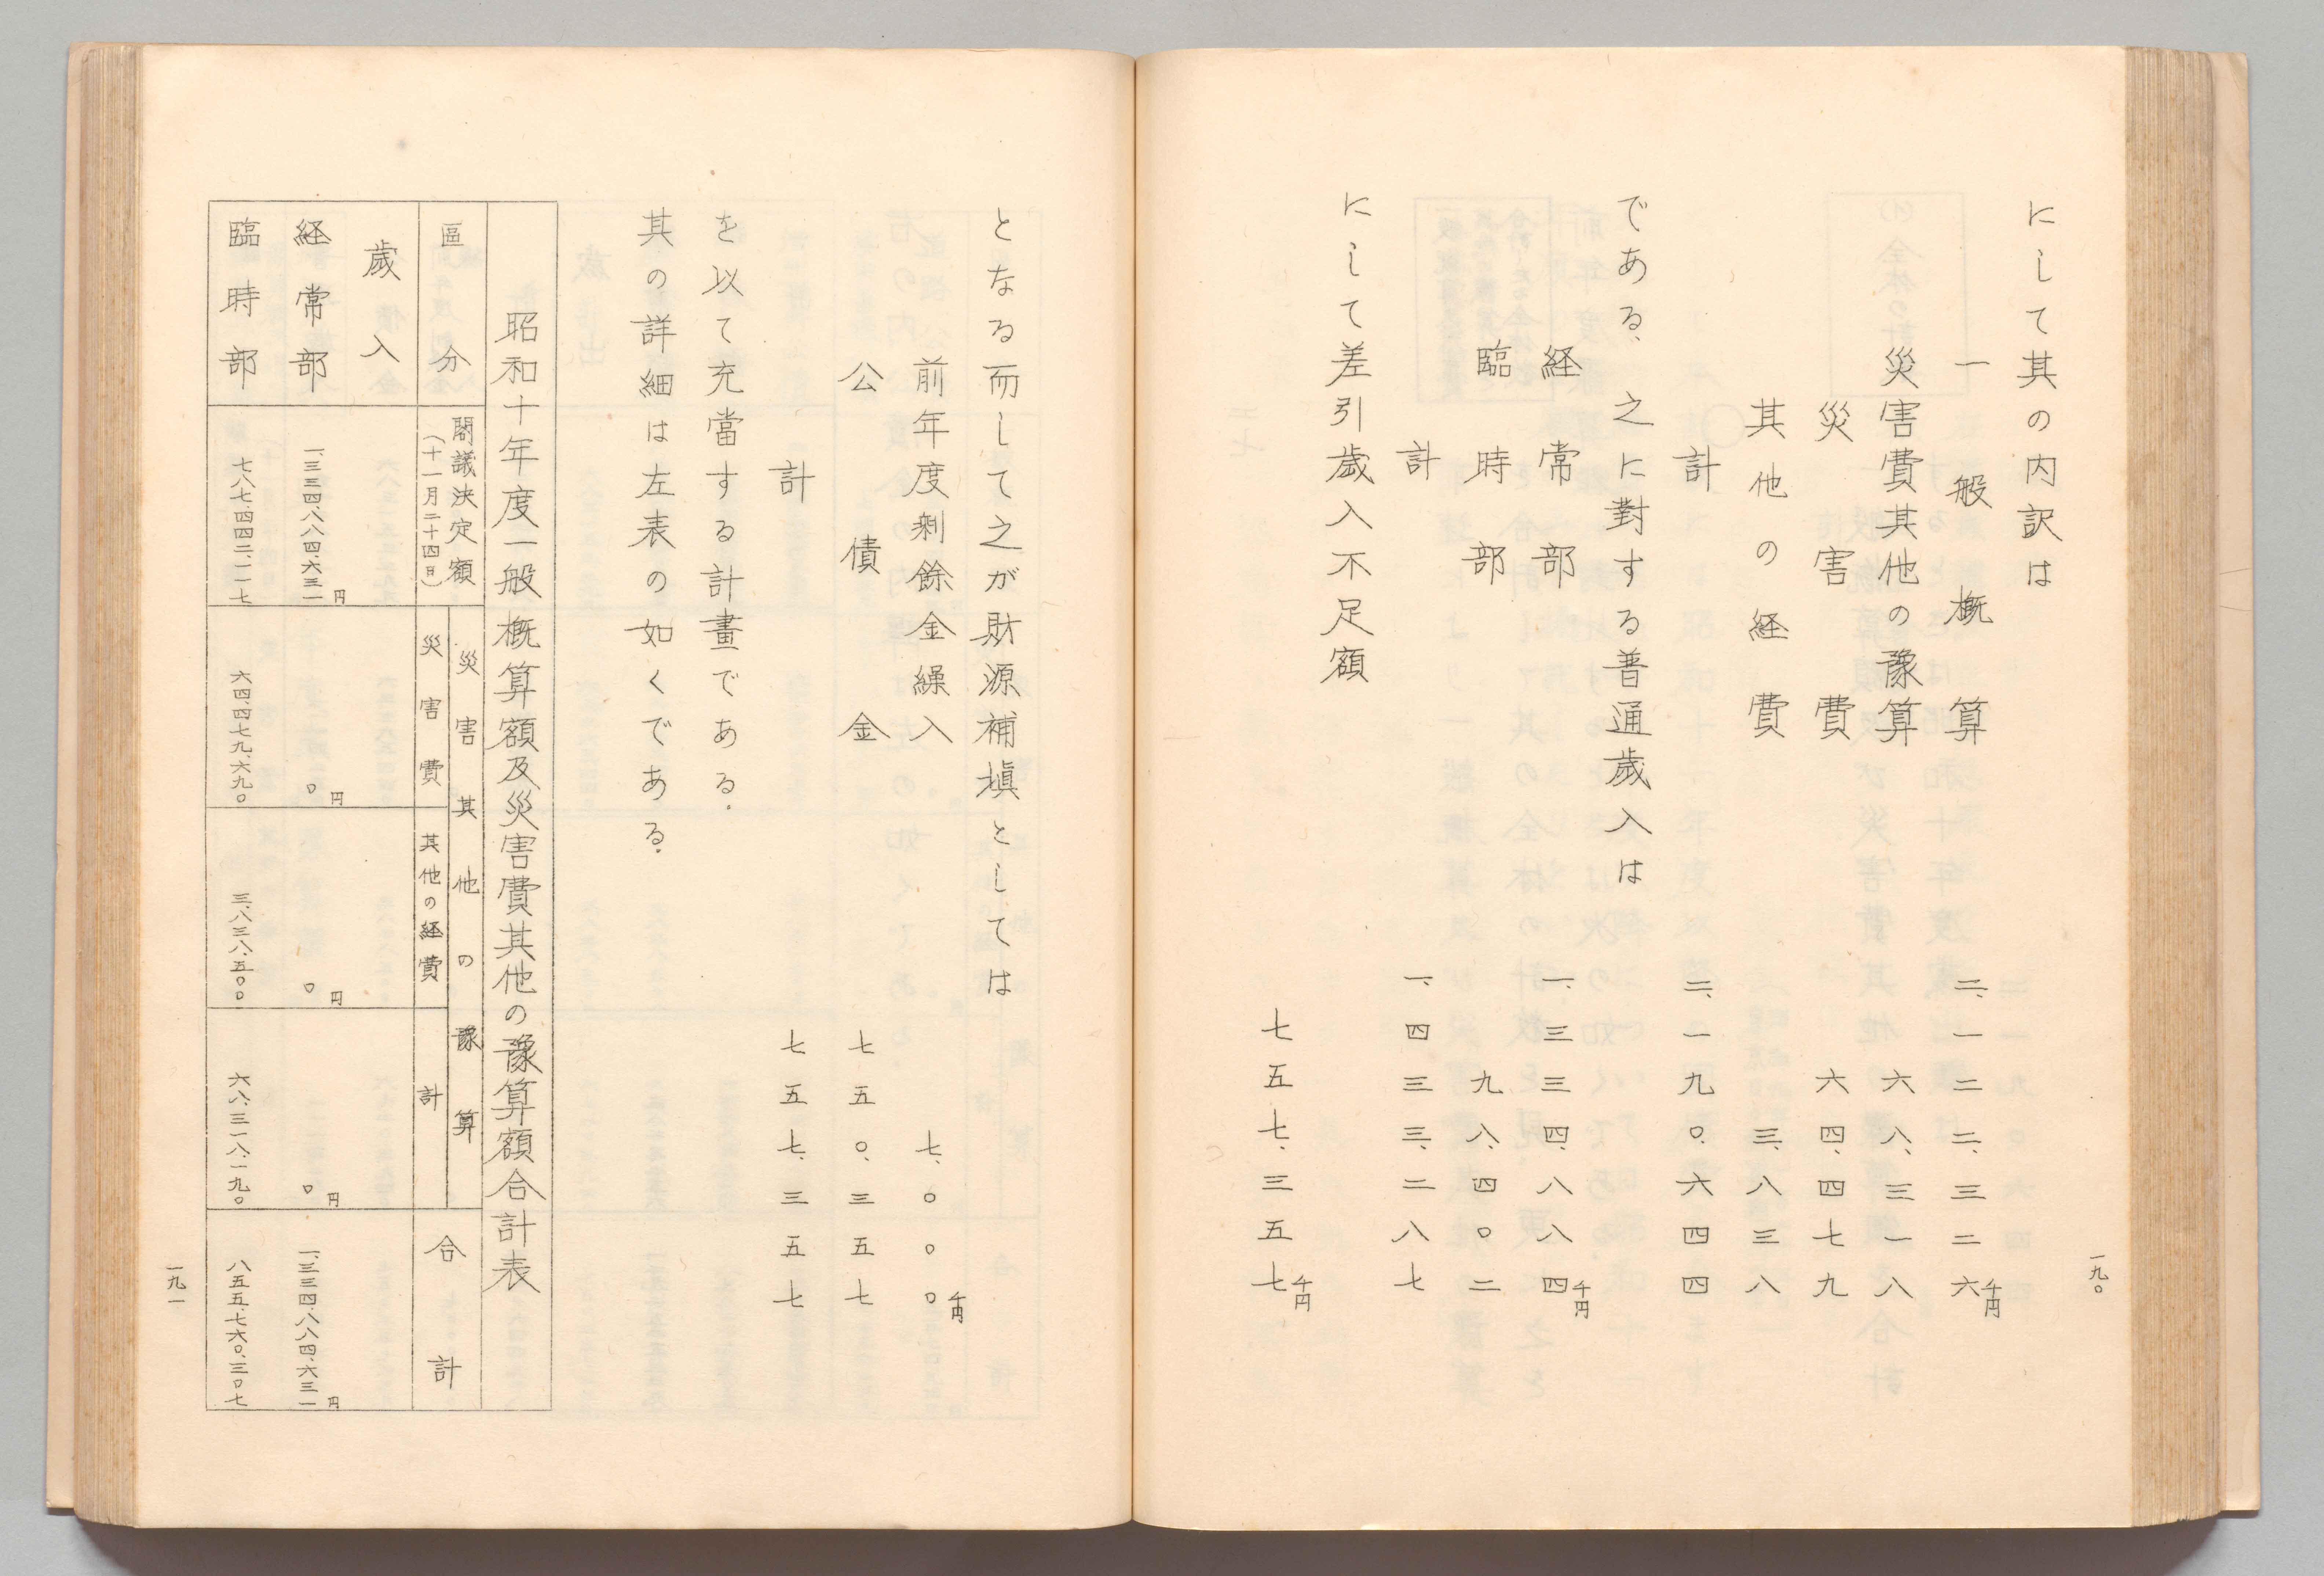 一九〇
にして其の内訳は
一般概算 二、一二二、三二六千円
災害費其他の豫算 六八、三一八
災害費 六四、四七九
其他の経費 三、八三八
計 二、一九〇、六四四
である、之に對する普通歳入は
経常部 一、三三四、八八四千円
臨時部 九八、四〇二
計 一、四三三、二八七
にして差引歳入不足額
七五七、三五七千円
となる而して之が財源補塡としては
前年度剰餘金繰入 七、〇〇〇千円
公債金 七五〇、三五七
計 七五七、三五七
を以て充當する計畫である.
其の詳細は左表の如くである.
昭和十年度一般概算額及災害費其他の豫算額合計表
區分
閣議決定額
(十一月二十四日)
災害其他の豫算
災害費
其他の経費
計
合計
歳入
経常部 一、三三四、八八四、六三一円 〇円 〇円 〇円 一、三三四、八八四、六三一円
臨時部 七八七、四四二、一一七 六四、四七九、六九〇 三、八三八、五〇〇 六八、三一八、一九〇 八五五、七六〇、三〇七
一九一